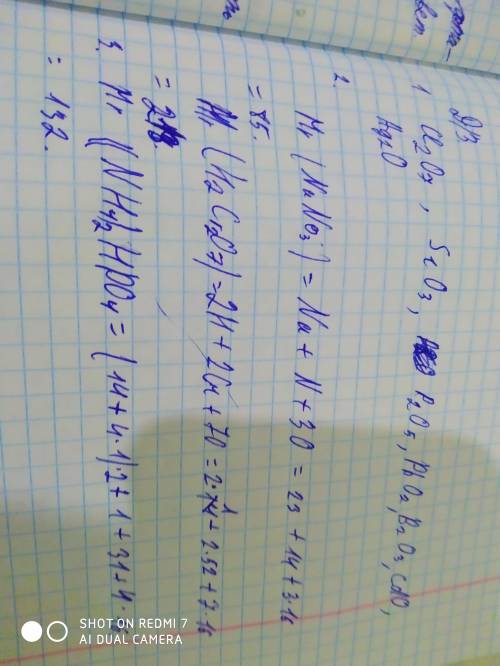 ДЗ
1 Cl₂O₇, SeO₃, P₂O₅, PbO₂, B₂O₃, CdO,
Ag₂O
2. Mr (NaNO₃) = Na + N + 3O = 23 + 14 + 3·16
= 85.
Mr (H₂Cr₂O₇) = 2H + 2Cr + 7O = 2·1 + 2·52 + 7·16
= 218.
3. Mr ((NH₄)₂HPO₄ = (14 + 4·1)·2 + 1 + 31 + 4·
= 132.
SHOT ON REDMI 7
AI DUAL CAMERA